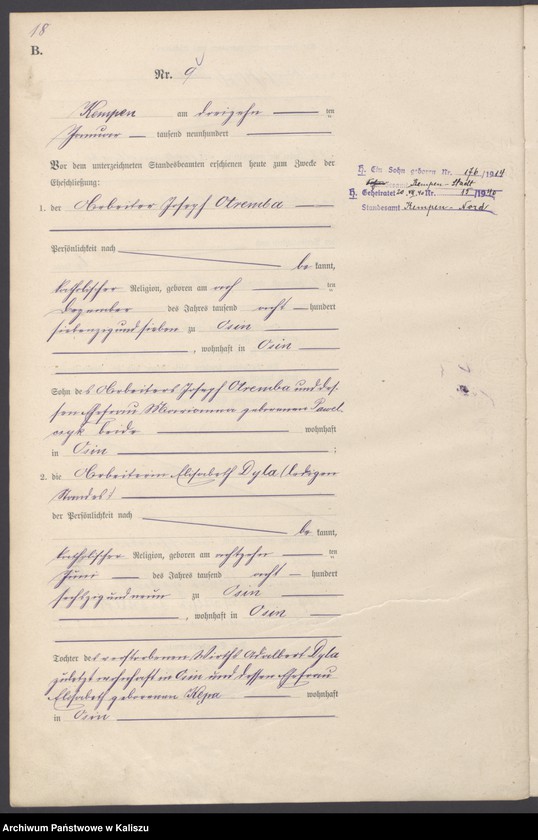 18
B.
Nr. 9
Kempen am dreizehn ten
Januar tausend neunhundert
Vor dem unterzeichneten Standesbeamten erschienen heute zum Zwecke der
Eheschließung:
1. der Arbeiter Joseph Otremba
Persönlichkeit nach
be kannt,
katholischer Religion, geboren am ten
Dezember des Jahres tausend acht hundert
siebenzig und sieben zu Osin
, wohnhaft in Osin
Sohn des Arbeiters Joseph Otremba und des-
sen Ehefrau Marianna geborenen Pawel-
czyk beide wohnhaft
in Osin ;
2. die Arbeiterin Elisabeth Dyla (ledigen
Standes)
der Persönlichkeit nach
be kannt,
katholischer Religion, geboren am achtzehn ten
Juni des Jahres tausend acht hundert
sechzig und neun zu Osin
, wohnhaft in Osin
Tochter des verstorbenen Wirths Adalbert Dyla
zuletzt wohnhaft in Osin und dessen Ehefrau
Elisabeth geborenen Kepa wohnhaft
in Osin
H. Ein Sohn geboren Nr. 176/1914
Kempen-Stadt
H. Geheiratet Nr. /1940
Standesamt Kempen-Nord
Archiwum Państwowe w Kaliszu